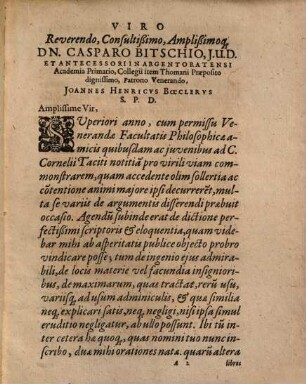 VIRO
Reverendo, Consultißimo, Amplißimoq,
DN. CASPARO BITSCHIO, J.U.D.
ET ANTECESSORI IN ARGENTORATENSI
Academia Primario, Collegii item Thomani Præposito
dignissimo, Patrono Venerando,
JOANNES HENRICVS BŒCLERVS
S. P. D.
Amplissime Vir,
SUperiori anno, cum permissu Ve-
nerandæ Facultatis Philosophicæ a-
micis quibusdam ac juvenibus ad C.
Cornelii Taciti notitiã pro virili viam com-
monstrarem, quam accedente olim sollertia ac
cõtentione animi majore ipsi decurrerẽt, mul-
ta se variè de argumentis disserendi præbuit
occasio. Agendũ subinde erat de dictione per-
fectißimi scriptoris & eloquentia, quam vide-
bar mihi ab asperitatis publice objecto probro
vindicare posse, tum de ingenio ejus admira-
bili, de locis materie vel facundia insigniori-
bus, de maximarum, quas tractat, rerũ usu,
variisq, ad usum adminiculis, & quæ similia
neq, explicari satis, neq, negligi, nisi ipsa simul
eruditio negligatur, ab ullo possunt. Ibi tũ in-
ter cetera hæ quoq,, quas nomini tuo nunc in-
scribo, duæ mihi orationes natæ. quarũ altera
A 2 libros